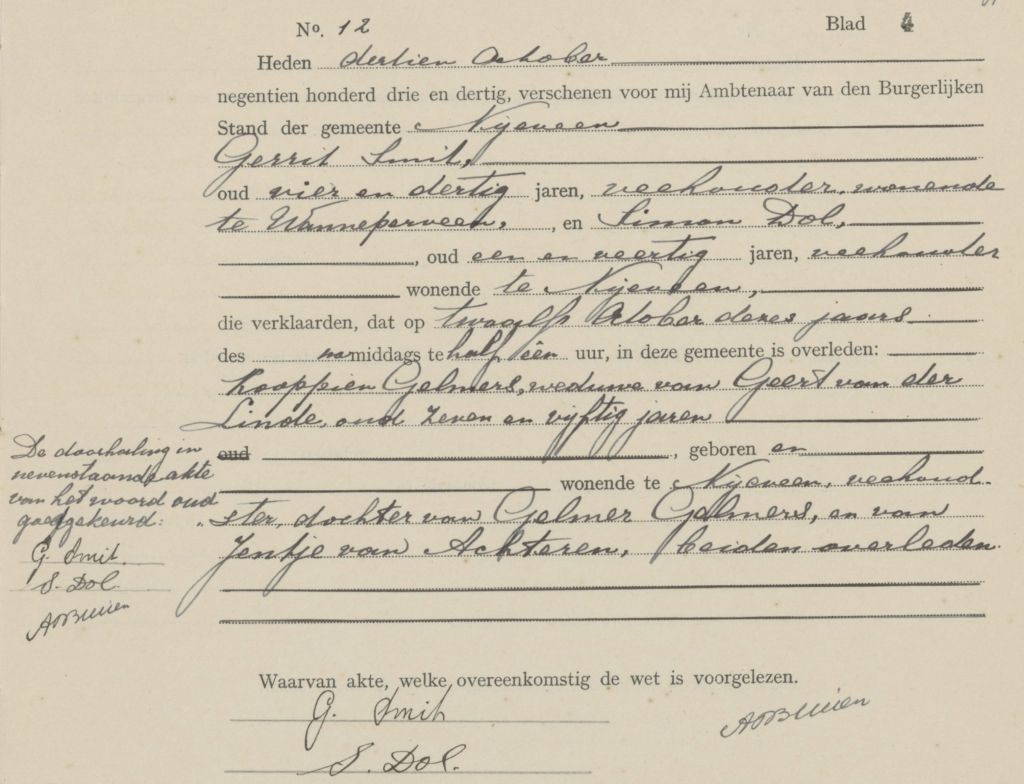 No. 12 Blad 4
Heden dertien October
negentien honderd drie en dertig, verschenen voor mij Ambtenaar van den Burgerlijken
Stand der gemeente Nijeveen
Gerrit Smit,
oud vier en dertig jaren, veehouder, wonende
te Wanneperveen, , en Simon Dol,
, oud een en veertig jaren, veehouder
wonende te Nijeveen,
die verklaarden, dat op twaalf October dezes jaars
des voormiddags te half één uur, in deze gemeente is overleden:
Gelmers, weduwe van Geert van der
Linde, oud zeven en vijftig jaren
oud , geboren en
wonende te Nijeveen, veehoud-
ster, dochter van Gelmer Gelmers, en van
Jentje van Achteren, beiden overleden.
De doorhaling in
nevenstaande akte
van het woord oud
goedgekeurd:
G. Smit.
S. Dol.
Waarvan akte, welke overeenkomstig de wet is voorgelezen.
G. Smit
S. Dol.